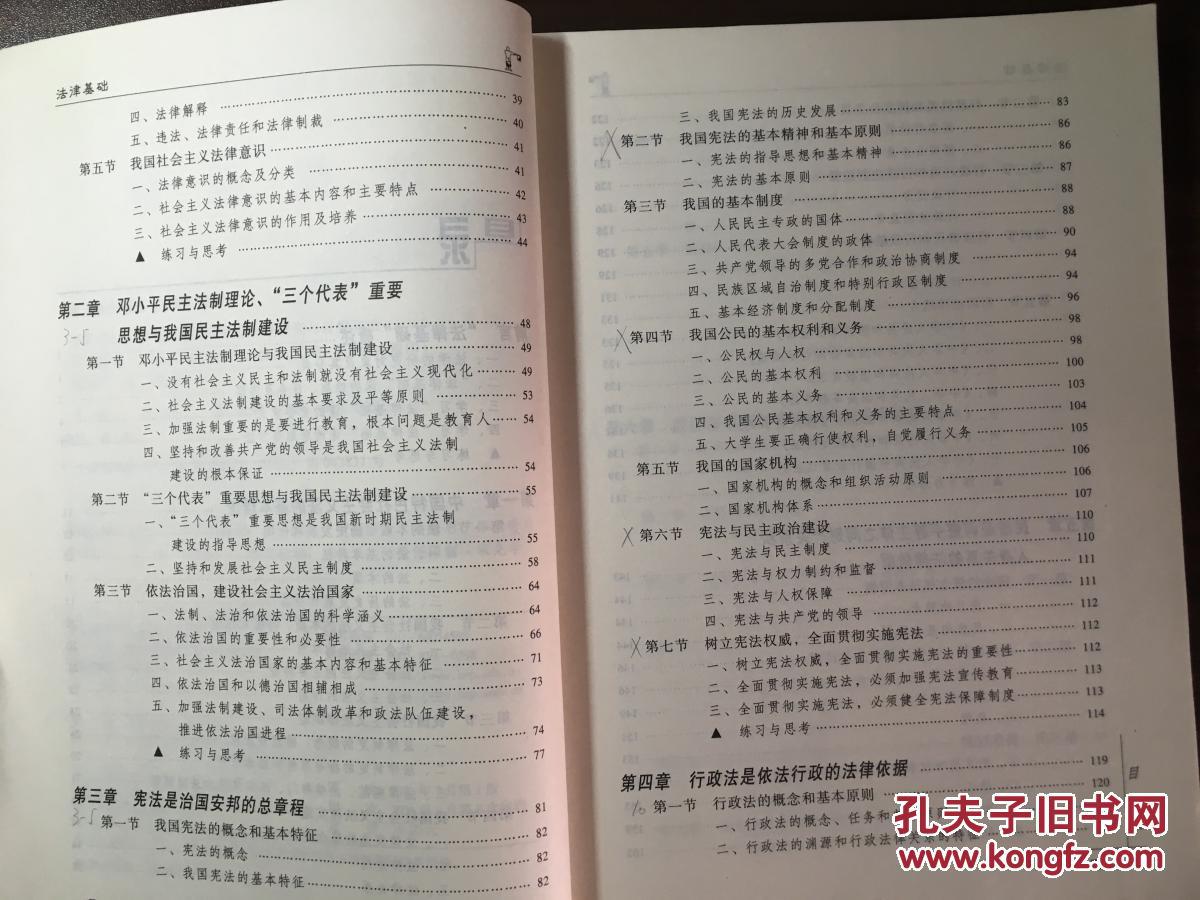 法津基础
四、法律解释 …… 39
五、违法、法律责任和法律制裁 …… 40
第五节 我国社会主义法律意识 …… 41
一、法律意识的概念及分类 …… 41
二、社会主义法律意识的基本内容和主要特点 …… 42
三、社会主义法律意识的作用及培养 …… 43
▲ 练习与思考 …… 44
第二章 邓小平民主法制理论、“三个代表”重要
3-5 思想与我国民主法制建设 …… 48
第一节 邓小平民主法制理论与我国民主法制建设 …… 49
一、没有社会主义民主和法制就没有社会主义现代化 …… 49
二、社会主义法制建设的基本要求及平等原则 …… 53
三、加强法制重要的是要进行教育，根本问题是教育人 …… 54
四、坚持和改善共产党的领导是我国社会主义法制
建设的根本保证 …… 54
第二节 “三个代表”重要思想与我国民主法制建设 …… 55
一、“三个代表”重要思想是我国新时期民主法制
建设的指导思想 …… 55
二、坚持和发展社会主义民主制度 …… 58
第三节 依法治国，建设社会主义法治国家 …… 64
一、法制、法治和依法治国的科学涵义 …… 64
二、依法治国的重要性和必要性 …… 66
三、社会主义法治国家的基本内容和基本特征 …… 71
四、依法治国和以德治国相辅相成 …… 73
五、加强法制建设、司法体制改革和政法队伍建设，
推进依法治国进程 …… 74
▲ 练习与思考 …… 77
第三章 宪法是治国安邦的总章程 …… 81
3-5 第一节 我国宪法的概念和基本特征 …… 82
一、宪法的概念 …… 82
二、我国宪法的基本特征 …… 82
三、我国宪法的历史发展 …… 83
第二节 我国宪法的基本精神和基本原则 …… 86
一、宪法的指导思想和基本精神 …… 86
二、宪法的基本原则 …… 87
第三节 我国的基本制度 …… 88
一、人民民主专政的国体 …… 88
二、人民代表大会制度的政体 …… 90
三、共产党领导的多党合作和政治协商制度 …… 94
四、民族区域自治制度和特别行政区制度 …… 94
五、基本经济制度和分配制度 …… 96
第四节 我国公民的基本权利和义务 …… 98
一、公民权与人权 …… 98
二、公民的基本权利 …… 100
三、公民的基本义务 …… 103
四、我国公民基本权利和义务的主要特点 …… 104
五、大学生要正确行使权利，自觉履行义务 …… 105
第五节 我国的国家机构 …… 106
一、国家机构的概念和组织活动原则 …… 106
二、国家机构体系 …… 107
第六节 宪法与民主政治建设 …… 110
一、宪法与民主制度 …… 110
二、宪法与权力制约和监督 …… 111
三、宪法与人权保障 …… 111
四、宪法与共产党的领导 …… 112
第七节 树立宪法权威，全面贯彻实施宪法 …… 112
一、树立宪法权威，全面贯彻实施宪法的重要性 …… 112
二、全面贯彻实施宪法，必须加强宪法宣传教育 …… 113
三、全面贯彻实施宪法，必须健全宪法保障制度 …… 113
▲ 练习与思考 …… 114
第四章 行政法是依法行政的法律依据 …… 119
第一节 行政法的概念和基本原则 …… 120
一、行政法的概念、任务和
二、行政法的渊源和行政法律关系的特征
目
孔夫子旧书网
www.kongfz.com